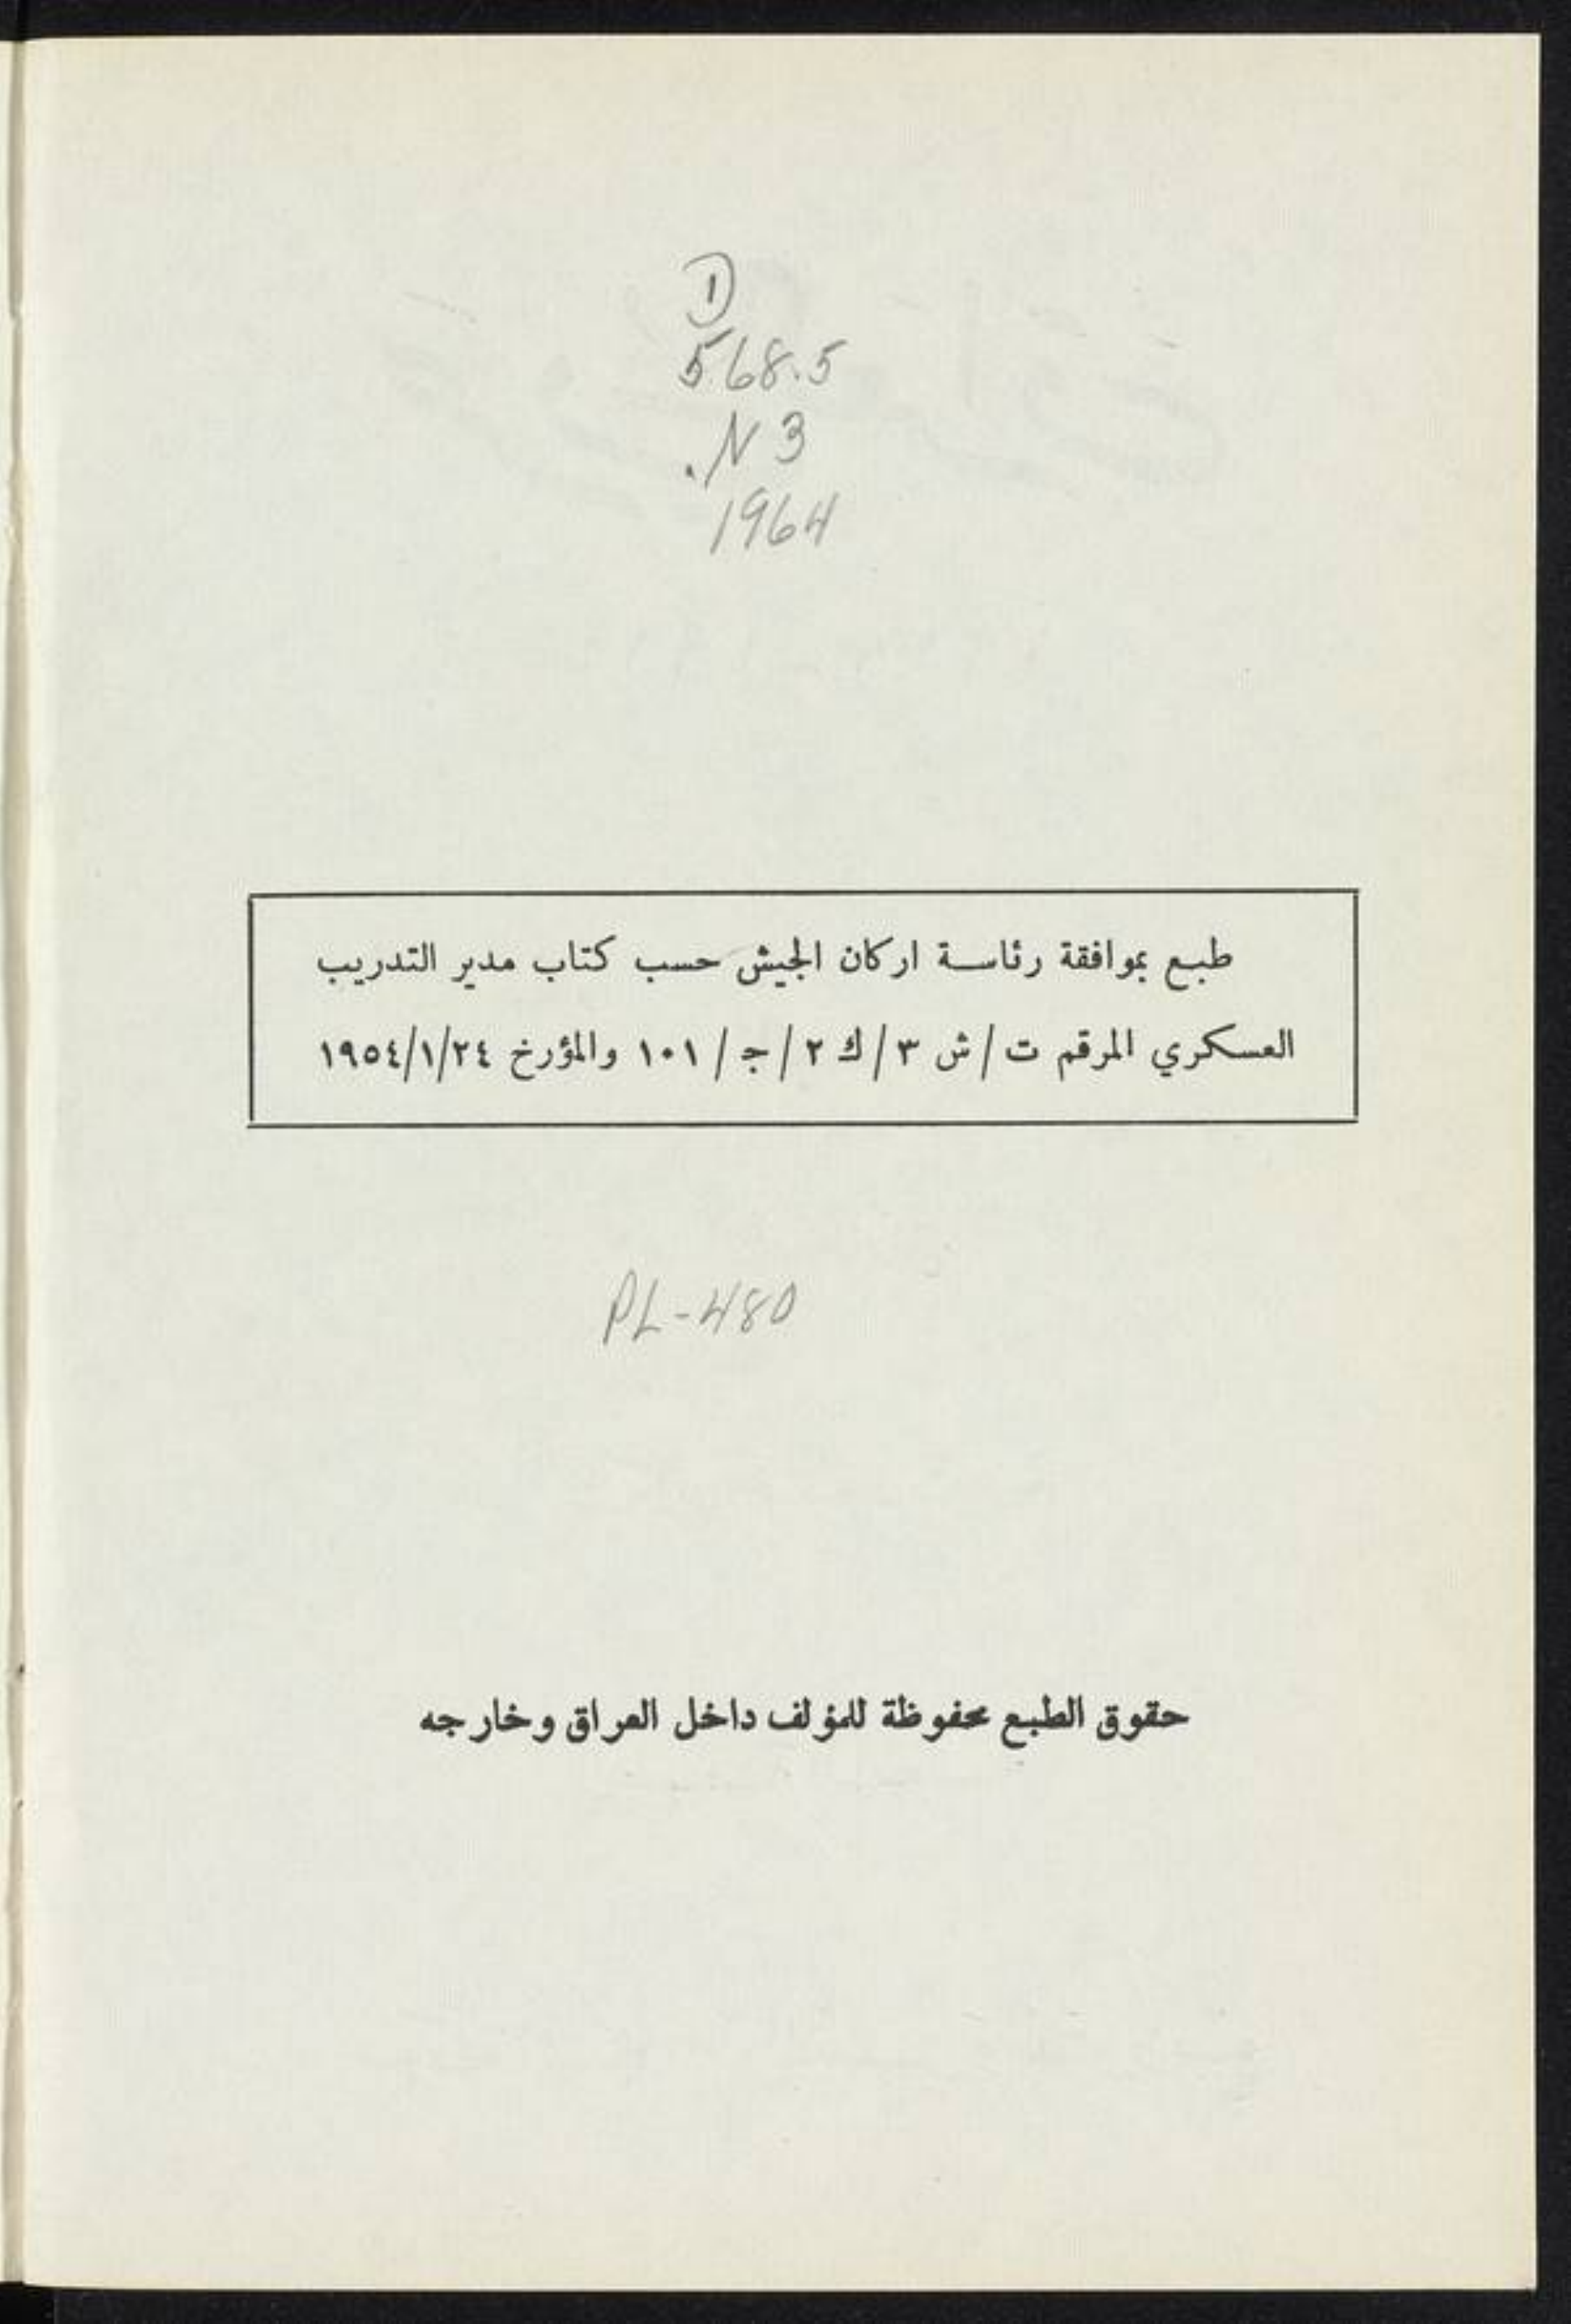 D
568.5
.N3
1964
طبع بموافقة رئاسة اركان الجيش حسب كتاب مدير التدريب
العسكري المرقم ت/ش ٣/ك ٢/ج/ ١٠١ والمؤرخ ١٩٥٤/١/٢٤
PL-480
حقوق الطبع محفوظة للمؤلف داخل العراق وخارجه